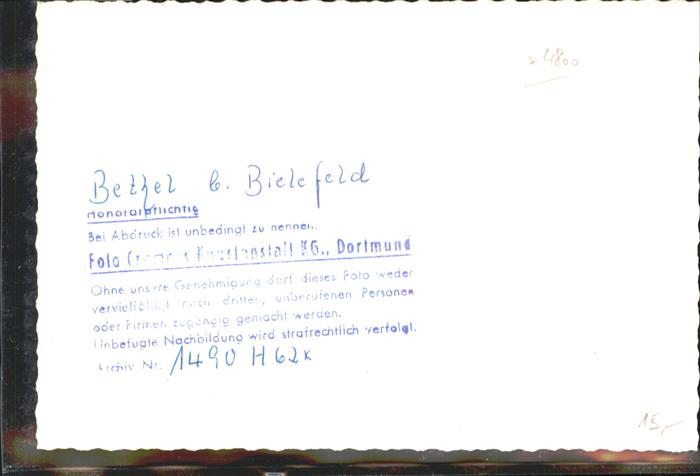 4800
Bethel b. Bielefeld
Honorarpflichtig
Bei Abdruck ist unbedingt zu nennen:
Foto Cramers Kunstanstalt KG., Dortmund
Ohne unsere Genehmigung darf dieses Foto weder
vervielfältigt noch dritten, unberufenen Personen
oder Firmen zugängig gemacht werden.
Unbefugte Nachbildung wird strafrechtlich verfolgt.
Archiv Nr. 1490 H 62k
15,-